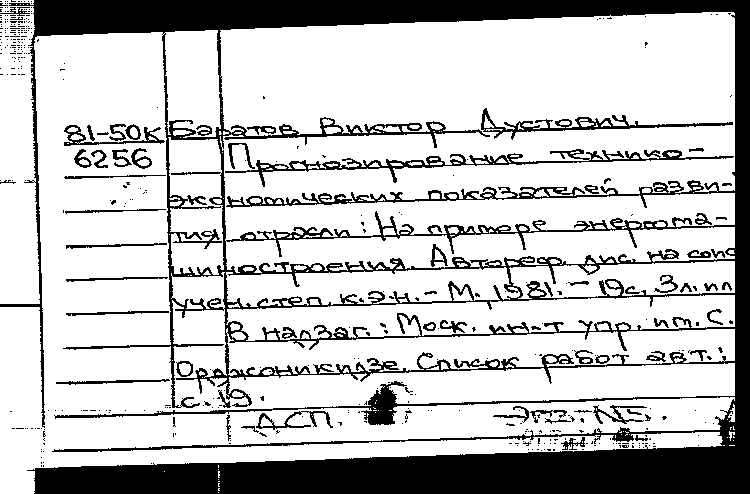 81-50К Баратов, Виктор Дустович.
6256 Прогнозирование технико-
экономических показателей разви-
тия отрасли: На примере энергома-
шиностроения. Автореф. дис. на соис
учен. степ. к.э.н. - М., 1981. - 19с., 3л. ил
В надзаг.: Моск. ин-т упр. им. С.
Орджоникидзе. Список работ авт.:
с. 19.
АСП. Экз. №5.